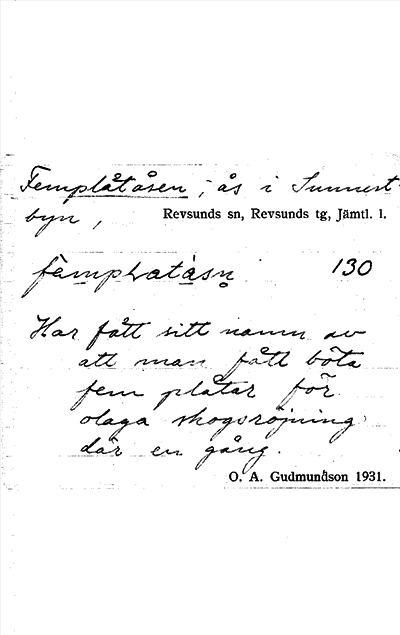 Femplåtåsen, ås i Sunnerst-
byn, Revsunds sn, Revsunds tg, Jämtl. l.
130
Har fått sitt namn av
att man fått böta
fem plåtar för
olaga skogsröjning
där en gång.
O. A. Gudmundson 1931.